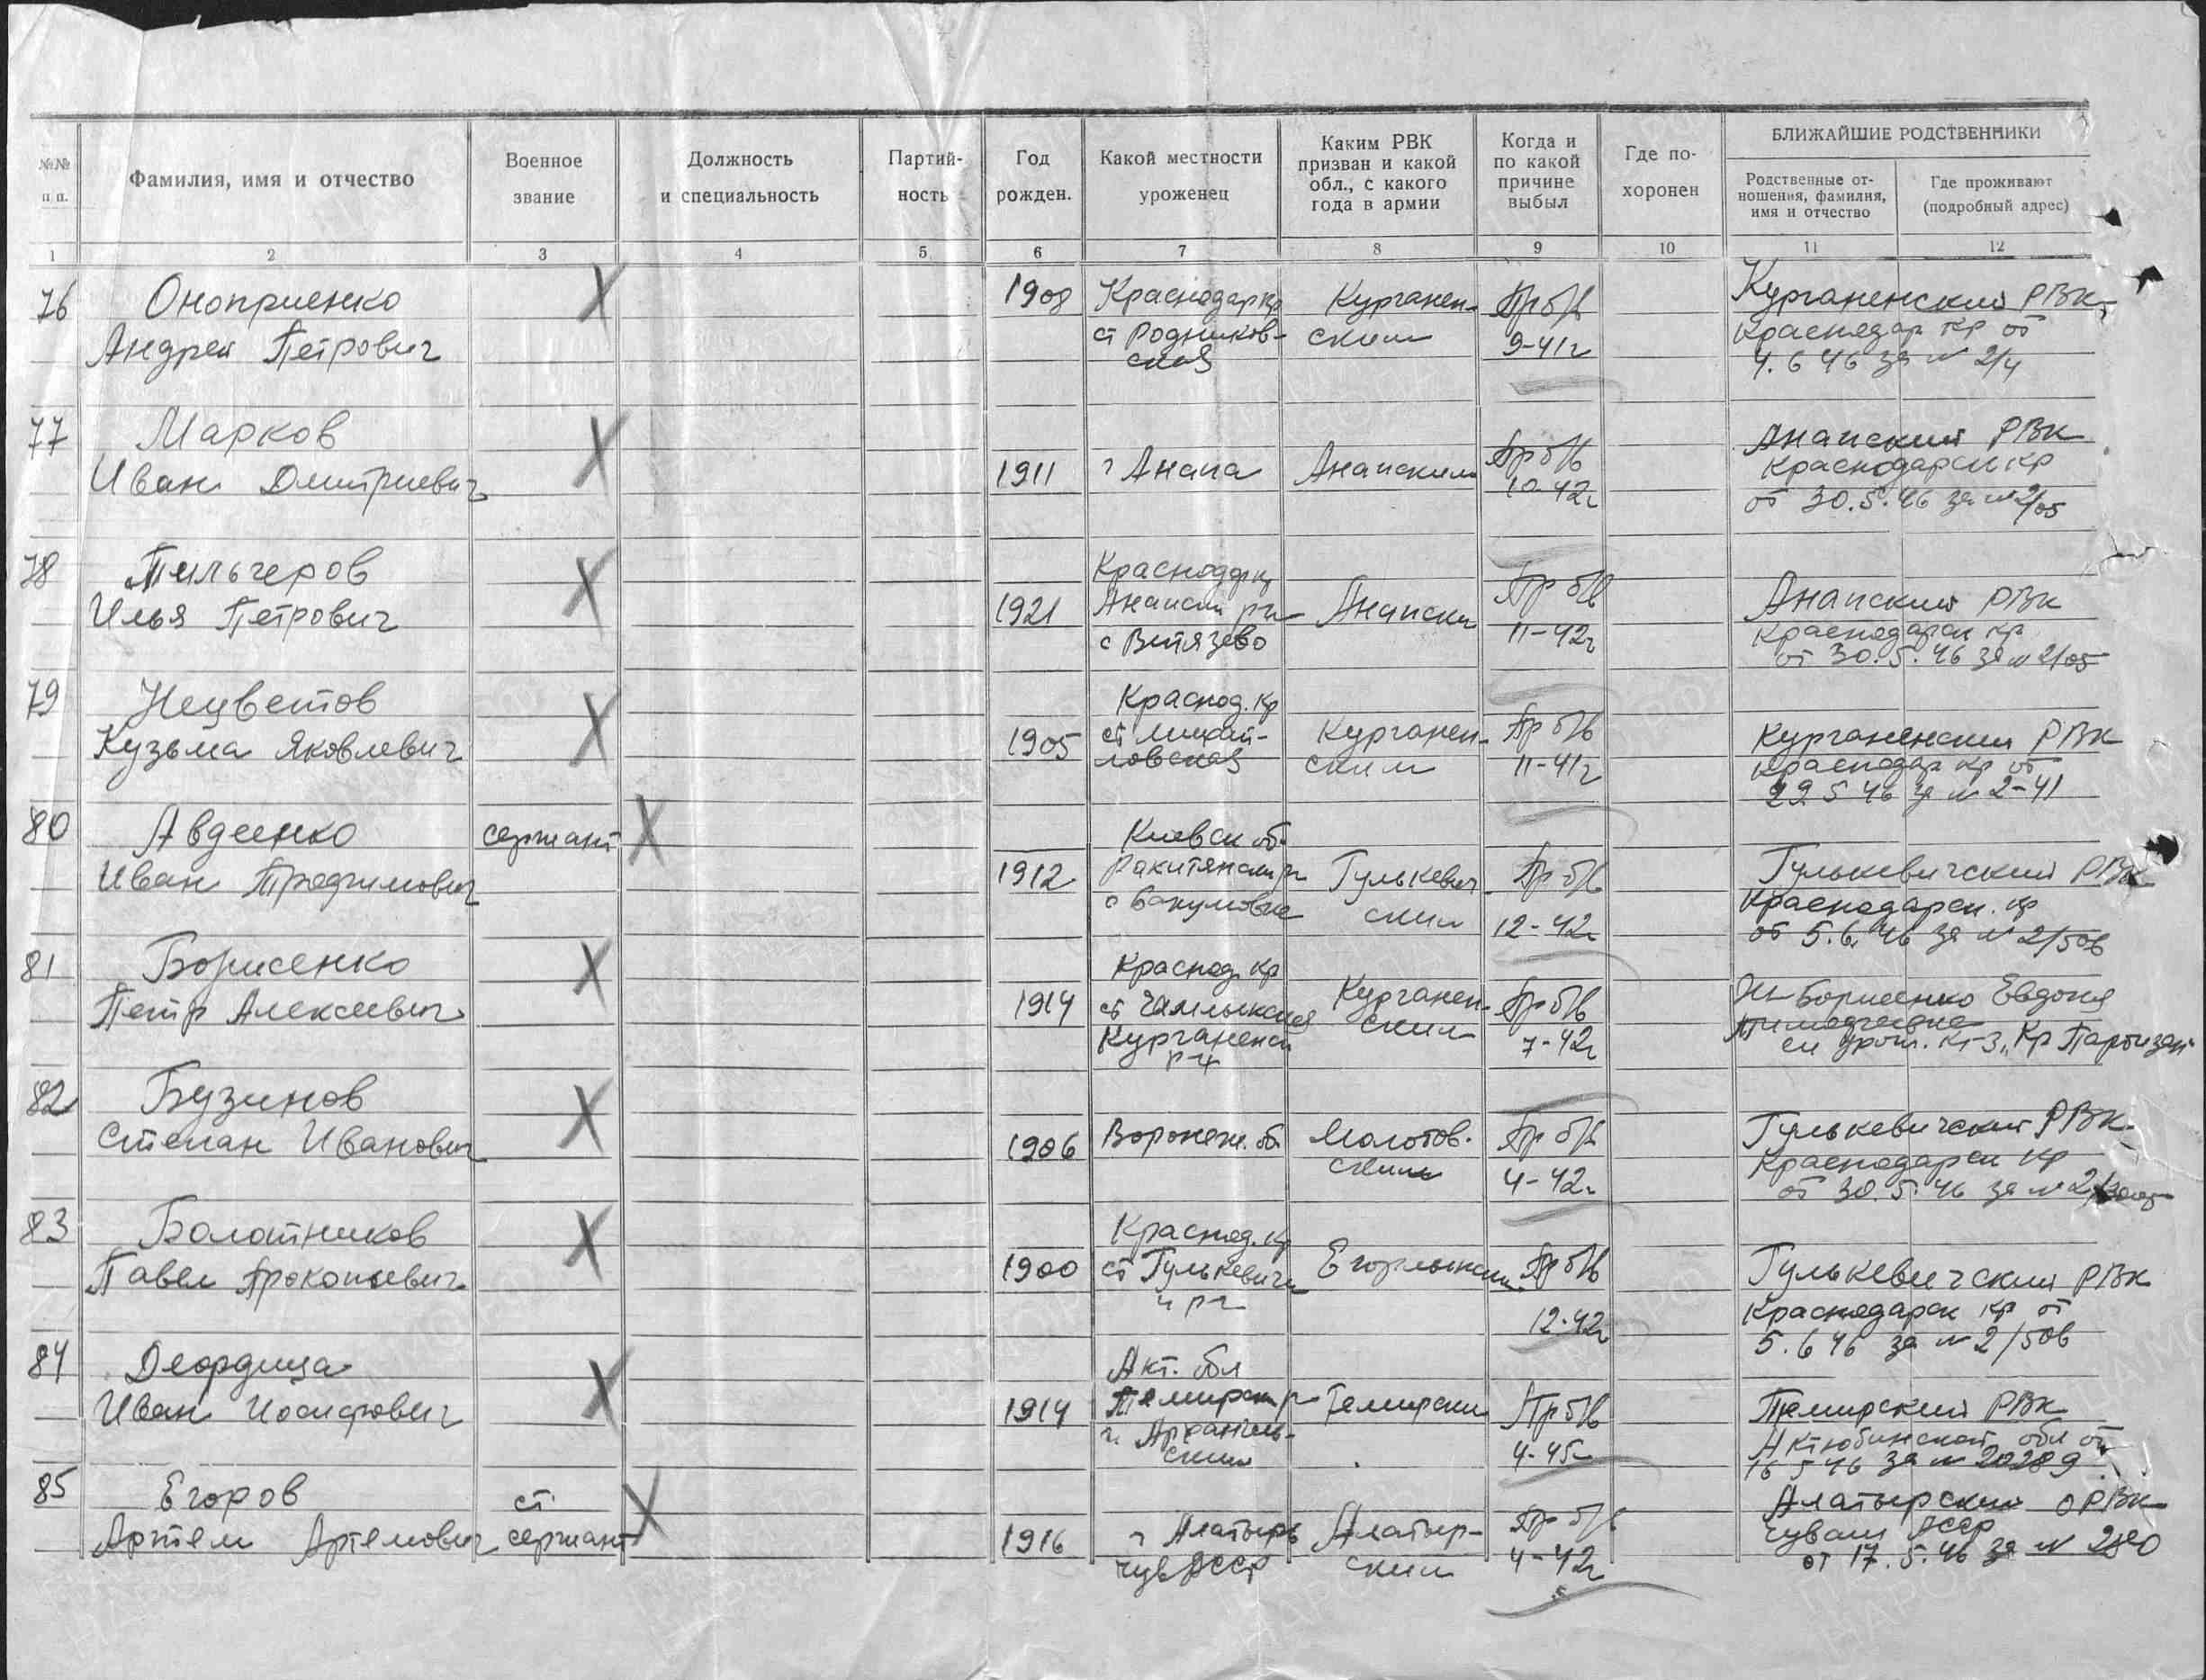 №№ п п.
Фамилия, имя и отчество
Военное звание
Должность и специальность
Партий- ность
Год рожден.
Какой местности уроженец
Каким РВК призван и какой обл., с какого года в армии
Когда и по какой причине выбыл
Где по- хоронен
БЛИЖАЙШИЕ РОДСТВЕННИКИ
Родственные от- ношения, фамилия, имя и отчество
Где проживают (подробный адрес)
1 2 3 4 5 6 7 8 9 10 11 12
76 Оноприенко 1908 Краснодар кр Курганен- Пр б/в Курганенский РВК
Андрей Петрович ст Родников- ским 9-41г Краснодар кр от
ская 4.6 46 за № 2/4
77 Марков Анапский РВК
Иван Дмитриевич 1911 г Анапа Анапским Пр б/в Краснодарск кр
10-42г от 30.5.46 за № 2/05
78 Тильчеров Краснодар кр Пр б/в Анапский РВК
Илья Петрович 1921 Анапски р-н Анапски 11-42г Краснодарск кр
с Витязево от 30.5.46 за № 2/05
79 Нецветов Краснод. кр
Кузьма Яковлевич 1905 ст Михай- Курганен- Пр б/в Курганенский РВК
ловская ским 11-41г Краснодар кр от
22 5 46 за № 2-41
80 Авдеенко сержант Киевск об.
Иван Трофимович 1912 Ракитянски р Гулькевич- Пр б/в Гулькевичский РВК
с Бакумовка ским 12-42г Краснодарск. кр
от 5.6.46 за № 2/506
81 Борисенко Краснод. кр
Петр Алексеевич 1914 ст Чамлыкская Курганен- Пр б/в Борисенко Евдокия
Курганенск ским 7-42г Тимофеевна
р-н К-з „Кр Партизан"
82 Бузинов
Степан Иванович 1906 Воронеж. об Молотов- Пр б/в Гулькевичский РВК
ским 4-42г Краснодарск кр
от 30.5.46 за № 2/
83 Болотников Краснод. кр
Павел Прокопьевич 1900 ст Гулькевичи Егорлыкским Пр б/в Гулькевичский РВК
12-42г Краснодарск кр от
5.6 46 за № 2/506
84 Деордица Акт. обл
Иван Иосифович 1914 Темирски р- Темирски Пр б/в Темирский РВК
Архангель- 4-45г Актюбинской обл от
ским 16 5 46 за № 20289
85 Егоров ст. Алатырский ОРВК
Артем Артемович сержант 1916 г Алатырь Алатыр- Пр б/в Чуваш АССР
Чув АССР ским 4-42г от 17.5.46 за № 280